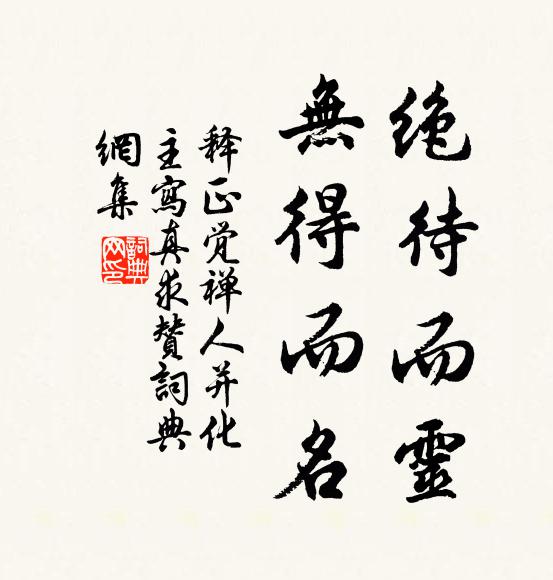 绝待而靈
無得而名
释正觉禅人并化
主寫真求贊詞典
網集
詞典網印